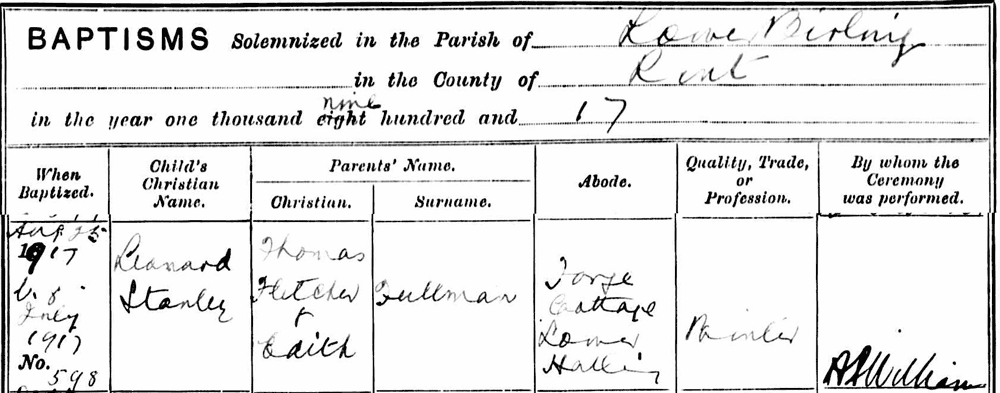 BAPTISMS Solemnized in the Parish of Lower Birling
in the County of Kent
in the year one thousand eight nine hundred and 17
When Baptized.
Child's Christian Name.
Parents' Name.
Christian.
Surname.
Abode.
Quality, Trade, or Profession.
By whom the Ceremony was performed.
Aug 25
1917
July
1917
No.
598
Leonard
Stanley
Thomas
Fletcher
&
Edith
Forge
Cottage
Lower
Halling